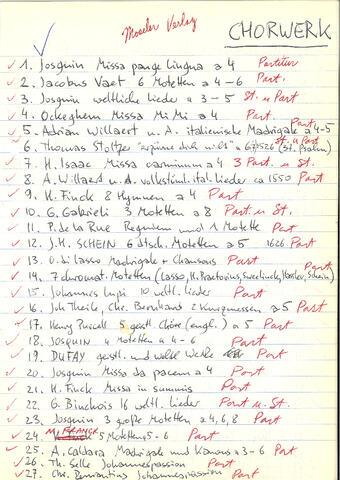 Moseler Verlag
CHORWERK
✓ 1. Josquin Missa pange lingua a 4 Partitur
✓ 2. Jacobus Vaet 6 Motetten a 4-6 Part.
✓ 3. Josquin weltliche Lieder a 3-5 St. u Part
✓ 4. Ockeghem Missa Mi Mi a 4 Part.
5. Adrian Willaert u. A. italienische Madrigale a 4-5 Part
✓ 6. Thomas Stoltzer "erzürne dich nicht" a 6 / 1526 (St. Psalm) St. u Part
✓ 7. H. Isaac Missa carminum a 4 3 Part. u St.
✓ 8. A. Willaert u. A. volkstüml. ital. Lieder ca 1550 Part
✓ 9. H. Finck 8 Hymnen a 4 Part
✓ 10. G. Gabrieli 3 Motetten a 8 Part u. St.
✓ 11. P. de la Rue Requiem und 1 Motette Part
✓ 12. J.H. SCHEIN 6 dtsch. Motetten a 5 1626 Part
✓ 13. O. di Lasso Madrigale + Chansons Part
✓ 14. 7 chromat. Motetten (Lasso, H. Praetorius, Sweelinck, Hassler, Schein) Part
✓ 15. Johannes Lupi 10 weltl. Lieder Part
✓ 16. Joh Theile, Chr. Bernhard 2 Kurzmessen a 5 Part
✓ 17. Henry Purcell 5 geistl. Chöre (engl.) a 5 Part
✓ 18. JOSQUIN 4 Motetten a 4-6 Part
✓ 19. DUFAY geistl. und weltl Werke Part
✓ 20. Josquin Missa da pacem a 4 Part
✓ 21. H. Finck Missa in summis Part
✓ 22. G. Binchois 16 weltl. Lieder Part u. St
✓ 23. Josquin 3 große Motetten a 4, 6, 8 Part
✓ 24. M. FRANCK 5 Motetten a 5-6 Part
✓ 25. A. Caldara Madrigale und Kanons a 3-6 Part
✓ 26. Th. Selle Johannespassion Part
✓ 27. Chr. Demantius Johannespassion Part